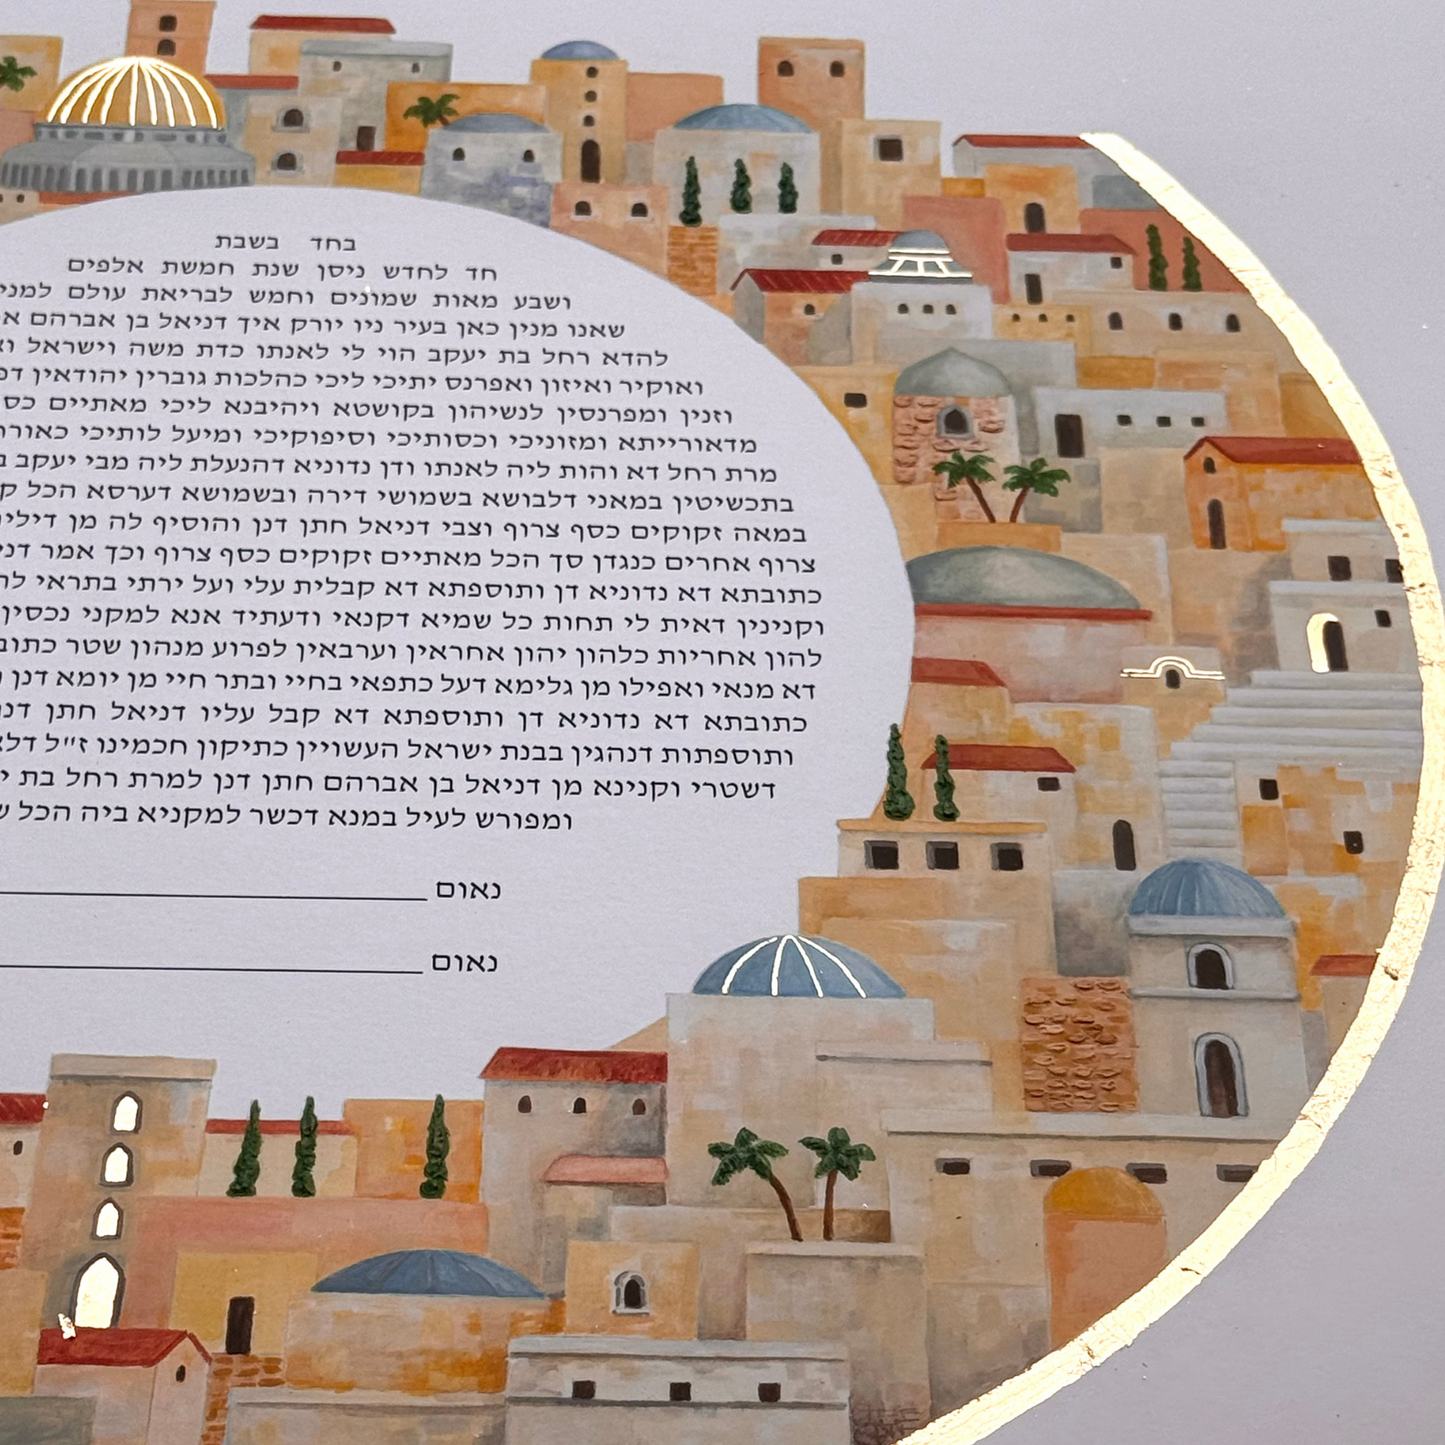 בחד בשבת
חד לחדש ניסן שנת חמשת אלפים
ושבע מאות שמונים וחמש לבריאת עולם למני
שאנו מנין כאן בעיר ניו יורק איך דניאל בן אברהם
להדא רחל בת יעקב הוי לי לאנתו כדת משה וישראל
ואוקיר ואיזון ואפרנס יתיכי ליכי כהלכות גוברין יהודאין
וזנין ומפרנסין לנשיהון בקושטא ויהיבנא ליכי מאתיים כס
מדאורייתא ומזוניכי וכסותיכי וסיפוקיכי ומיעל לותיכי כאור
מרת רחל דא והות ליה לאנתו ודן נדוניא דהנעלת ליה מבי יעקב
בתכשיטין במאני דלבושא בשמושי דירה ובשמושא דערסא הכל
במאה זקוקים כסף צרוף וצבי דניאל חתן דנן והוסיף לה מן דילי
צרוף אחרים כנגדן סך הכל מאתיים זקוקים כסף צרוף וכך אמר דני
כתובתא דא נדוניא דן ותוספתא דא קבלית עלי ועל ירתי בתראי
וקנינין דאית לי תחות כל שמיא דקנאי ודעתיד אנא למקני נכסין
להון אחריות כלהון יהון אחראין וערבאין לפרוע מנהון שטר כתוב
דא מנאי ואפילו מן גלימא דעל כתפאי בחיי ובתר חיי מן יומא דנן
כתובתא דא נדוניא דן ותוספתא דא קבל עליו דניאל חתן דנ
ותוספתות דנהגין בבנת ישראל העשויין כתיקון חכמינו ז״ל דלא
דשטרי וקנינא מן דניאל בן אברהם חתן דנן למרת רחל בת
ומפורש לעיל במנא דכשר למקניא ביה הכל
נאום
נאום